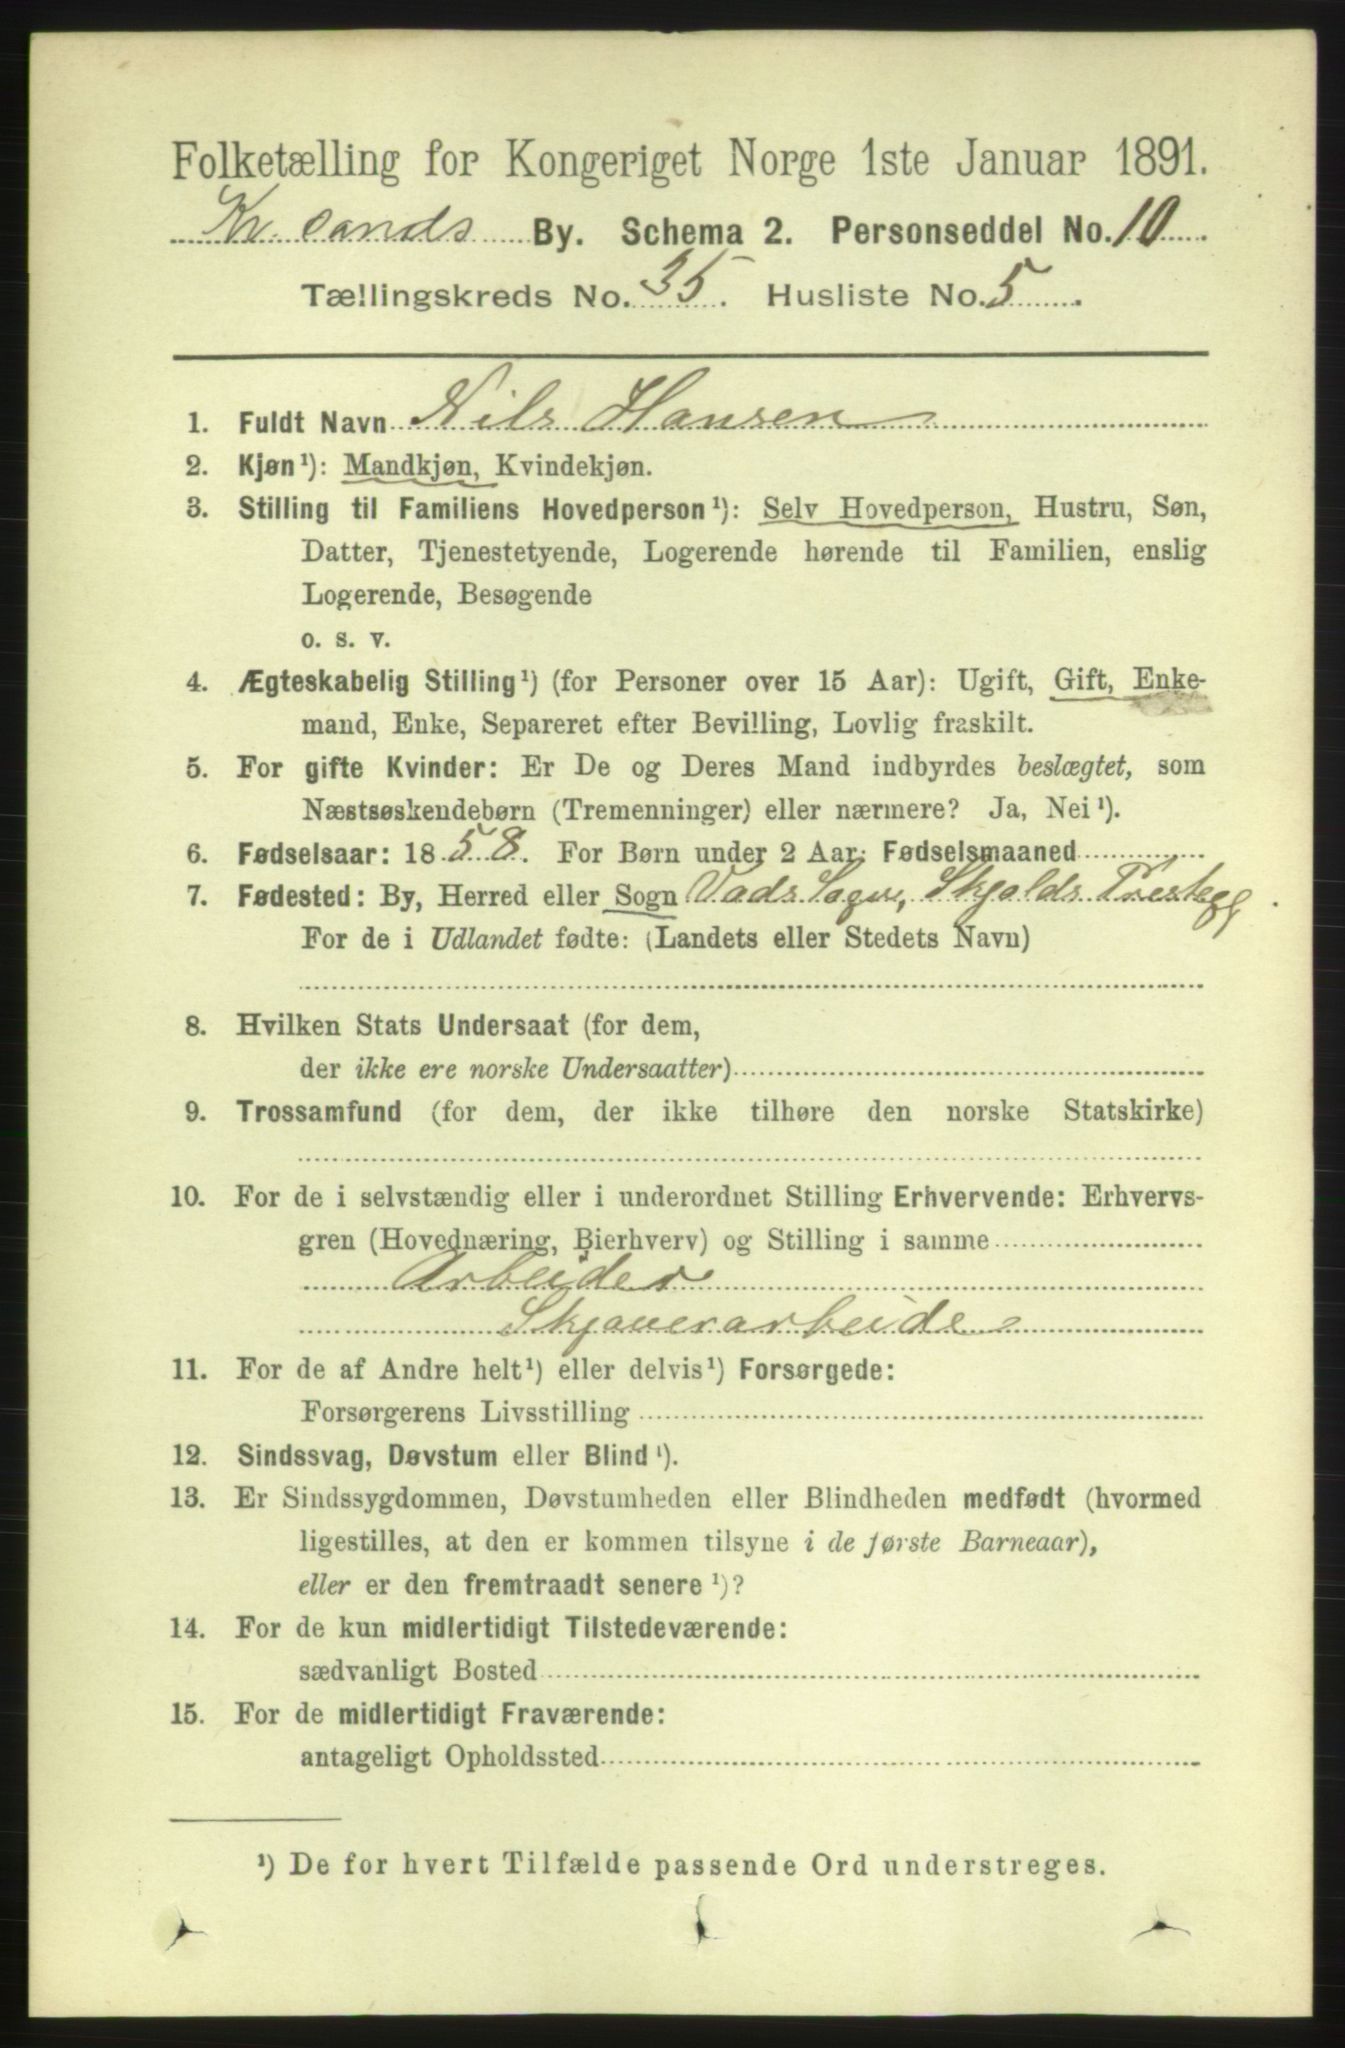 Folketælling for Kongeriget Norge 1ste Januar 1891.
Kr. sands By. Schema 2. Personseddel No. 10
Tællingskreds No. 35. Husliste No. 5.
1. Fuldt Navn Nils Hansen
2. Kjøn¹): Mandkjøn, Kvindekjøn.
3. Stilling til Familiens Hovedperson¹): Selv Hovedperson, Hustru, Søn,
Datter, Tjenestetyende, Logerende hørende til Familien, enslig
Logerende, Besøgende
o. s. v.
4. Ægteskabelig Stilling¹) (for Personer over 15 Aar): Ugift, Gift, Enke-
mand, Enke, Separeret efter Bevilling, Lovlig fraskilt.
5. For gifte Kvinder: Er De og Deres Mand indbyrdes beslægtet, som
Næstsøskendebørn (Tremenninger) eller nærmere? Ja, Nei¹).
6. Fødselsaar: 1858. For Børn under 2 Aar: Fødselsmaaned
7. Fødested: By, Herred eller Sogn Vads Sogn, Skjolds Prestegj
For de i Udlandet fødte: (Landets eller Stedets Navn)
8. Hvilken Stats Undersaat (for dem,
der ikke ere norske Undersaatter)
9. Trossamfund (for dem, der ikke tilhøre den norske Statskirke)
10. For de i selvstændig eller i underordnet Stilling Erhvervende: Erhvervs-
gren (Hovednæring, Bierhverv) og Stilling i samme
Arbeider
Skjauerarbeide
11. For de af Andre helt¹) eller delvis¹) Forsørgede:
Forsørgerens Livsstilling
12. Sindssvag, Døvstum eller Blind¹).
13. Er Sindssygdommen, Døvstumheden eller Blindheden medfødt (hvormed
ligestilles, at den er kommen tilsyne i de første Barneaar),
eller er den fremtraadt senere¹)?
14. For de kun midlertidigt Tilstedeværende:
sædvanligt Bosted
15. For de midlertidigt Fraværende:
antageligt Opholdssted
¹) De for hvert Tilfælde passende Ord understreges.